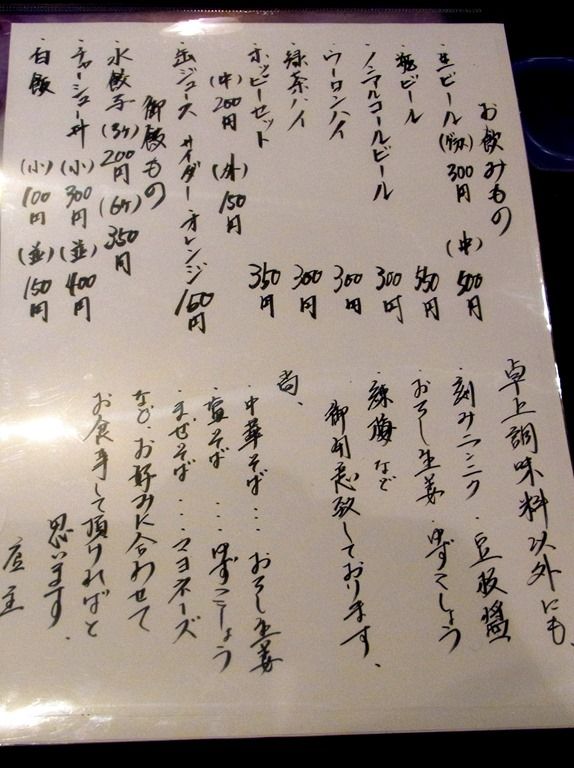 お飲みもの
・生ビール(グラス)300円 (中)500円
・瓶ビール 550円
・ノンアルコールビール 300円
・ウーロンハイ 300円
・緑茶ハイ 300円
・ホッピーセット 350円
(中)200円 (外)150円
・缶ジュース サイダー オレンジ 160円
御飯もの
・水餃子(3ケ)200円 (6ケ)350円
・チャーシュー丼(小)300円 (並)400円
・白飯 (小)100円 (並)150円
卓上調味料以外にも、
・刻みニンニク ・豆板醤
・おろし生姜 ・ゆずこしょう
・練梅 など
御用意致しております。
尚、
・中華そば…おろし生姜
・塩そば…ゆずこしょう
・まぜそば…マヨネーズ
など、お好みに合わせて
お食事して頂ければと
思います。
店主